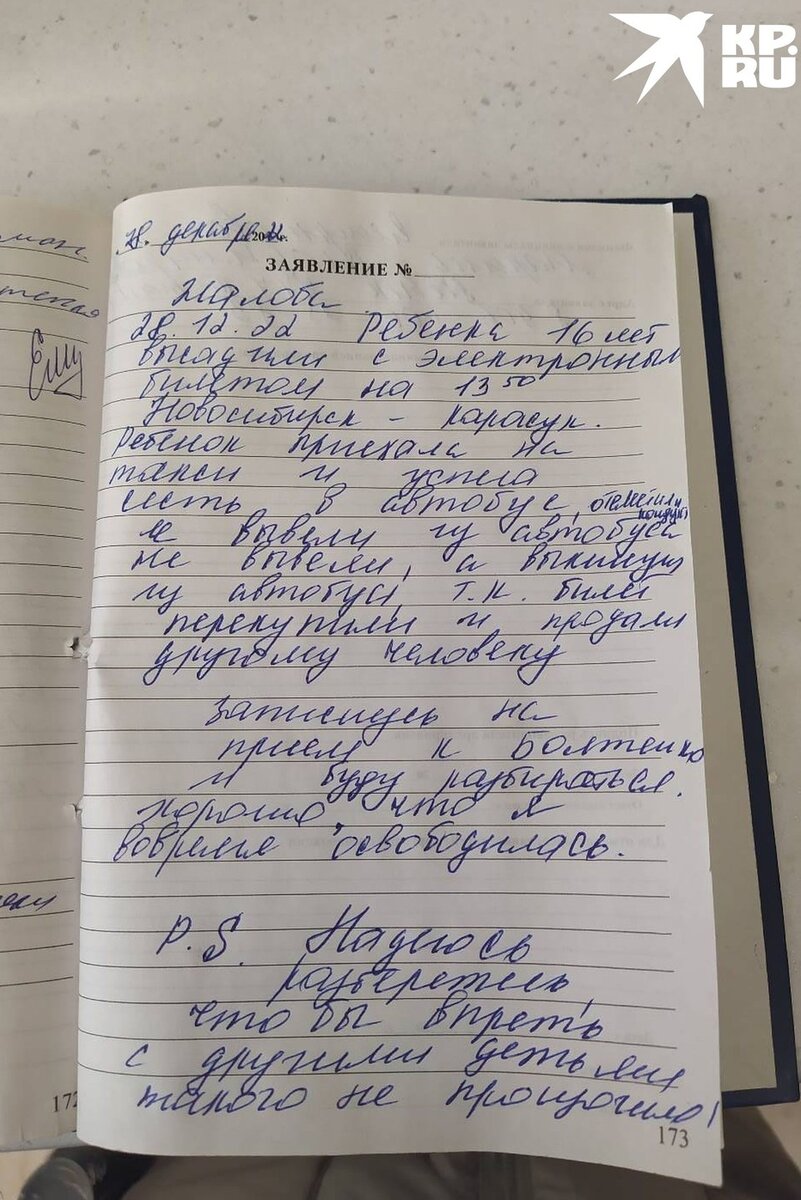 KP.
RU
28. декабря 2022г.
ЗАЯВЛЕНИЕ №
Жалоба
28.12.22 Ребенка 16 лет
высадили с электронным
билетом на 13 50
Новосибирск - Карасук.
Ребенок приехала на
такси и успела
сесть в автобус, отметили
ее вывели из автобуса
не вывели, а выкинули
из автобуса, т.к. билет
перекупили и продали
другому человеку
Запишусь на
прием к Болтенко
и буду разбираться.
хорошо, что я
вовремя освободилась.
P.S. Надеюсь
разберетесь,
что бы впреть
с другими детьми
такого не произошло!
172
173